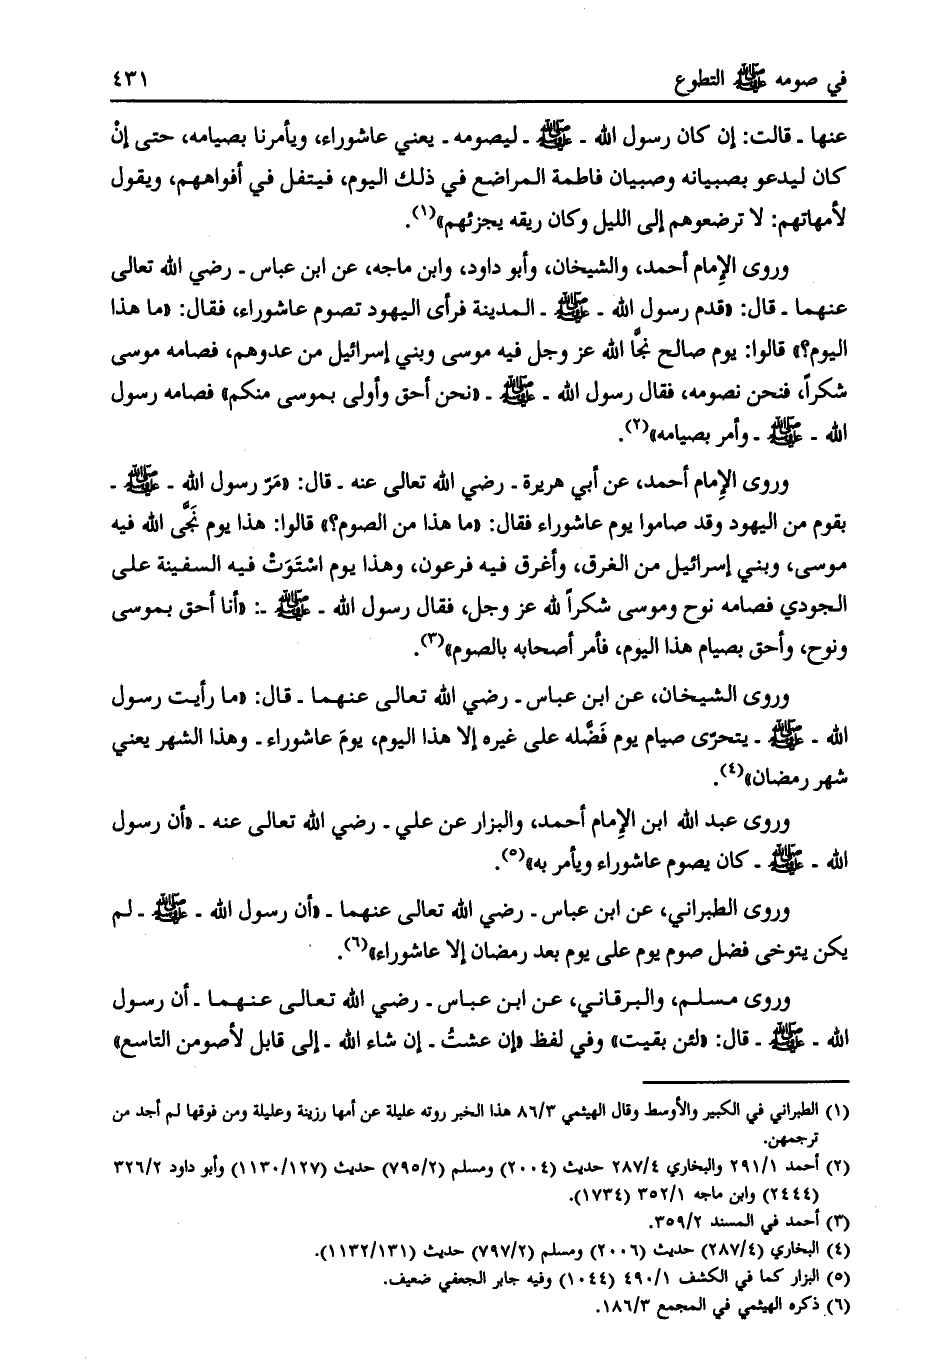 في صومه ﷺ التطوع ٤٣١
عنها ـ قالت: إن كان رسول الله ـ ﷺ ـ ليصومه ـ يعني عاشوراء، ويأمرنا بصيامه، حتى إنْ
كان ليدعو بصبيانه وصبيان فاطمة المراضع في ذلك اليوم، فيتفل في أفواههم، ويقول
لأمهاتهم: لا ترضعوهم إلى الليل وكان ريقه يجزئهم»(١).
وروى الإمام أحمد، والشيخان، وأبو داود، وابن ماجه، عن ابن عباس ـ رضي الله تعالى
عنهما ـ قال: «قدم رسول الله ـ ﷺ ـ المدينة فرأى اليهود تصوم عاشوراء، فقال: «ما هذا
اليوم؟» قالوا: يوم صالح نجَّا الله عز وجل فيه موسى وبني إسرائيل من عدوهم، فصامه موسى
شكراً، فنحن نصومه، فقال رسول الله ـ ﷺ ـ «نحن أحق وأولى بموسى منكم» فصامه رسول
الله ـ ﷺ ـ وأمر بصيامه»(٢).
وروى الإمام أحمد، عن أبي هريرة ـ رضي الله تعالى عنه ـ قال: «مَرّ رسول الله ـ ﷺ ـ
بقوم من اليهود وقد صاموا يوم عاشوراء فقال: «ما هذا من الصوم؟» قالوا: هذا يوم نَجَّى الله فيه
موسى، وبني إسرائيل من الغرق، وأغرق فيه فرعون، وهذا يوم اسْتَوَتْ فيه السفينة على
الجودي فصامه نوح وموسى شكراً لله عز وجل، فقال رسول الله ـ ﷺ ـ: «أنا أحق بموسى
ونوح، وأحق بصيام هذا اليوم، فأمر أصحابه بالصوم»(٣).
وروى الشيخان، عن ابن عباس ـ رضي الله تعالى عنهما ـ قال: «ما رأيت رسول
الله ـ ﷺ ـ يتحرّى صيام يوم فَضَّله على غيره إلا هذا اليوم، يومَ عاشوراء ـ وهذا الشهر يعني
شهر رمضان»(٤).
وروى عبد الله ابن الإمام أحمد، والبزار عن علي ـ رضي الله تعالى عنه ـ «أن رسول
الله ـ ﷺ ـ كان يصوم عاشوراء ويأمر به»(٥).
وروى الطبراني، عن ابن عباس ـ رضي الله تعالى عنهما ـ «أن رسول الله ـ ﷺ ـ لم
يكن يتوخى فضل صوم يوم على يوم بعد رمضان إلا عاشوراء»(٦).
وروى مسلم، والبرقاني، عن ابن عباس ـ رضي الله تعالى عنهما ـ أن رسول
الله ـ ﷺ ـ قال: «لئن بقيت» وفي لفظ «إن عشتُ ـ إن شاء الله ـ إلى قابل لأصومن التاسع»
(١) الطبراني في الكبير والأوسط وقال الهيثمي ٨٦/٣ هذا الخبر روته عليلة عن أمها رزينة وعليلة ومن فوقها لم أجد من
ترجمهن.
(٢) أحمد ٢٩١/١ والبخاري ٢٨٧/٤ حديث (٢٠٠٤) ومسلم (٧٩٥/٢) حديث (١١٣٠/١٢٧) وأبو داود ٣٢٦/٢
(٢٤٤٤) وابن ماجه ٣٥٢/١ (١٧٣٤).
(٣) أحمد في المسند ٣٥٩/٢.
(٤) البخاري (٢٨٧/٤) حديث (٢٠٠٦) ومسلم (٧٩٧/٢) حديث (١١٣٢/١٣١).
(٥) البزار كما في الكشف ٤٩٠/١ (١٠٤٤) وفيه جابر الجعفي ضعيف.
(٦) ذكره الهيثمي في المجمع ١٨٦/٣.